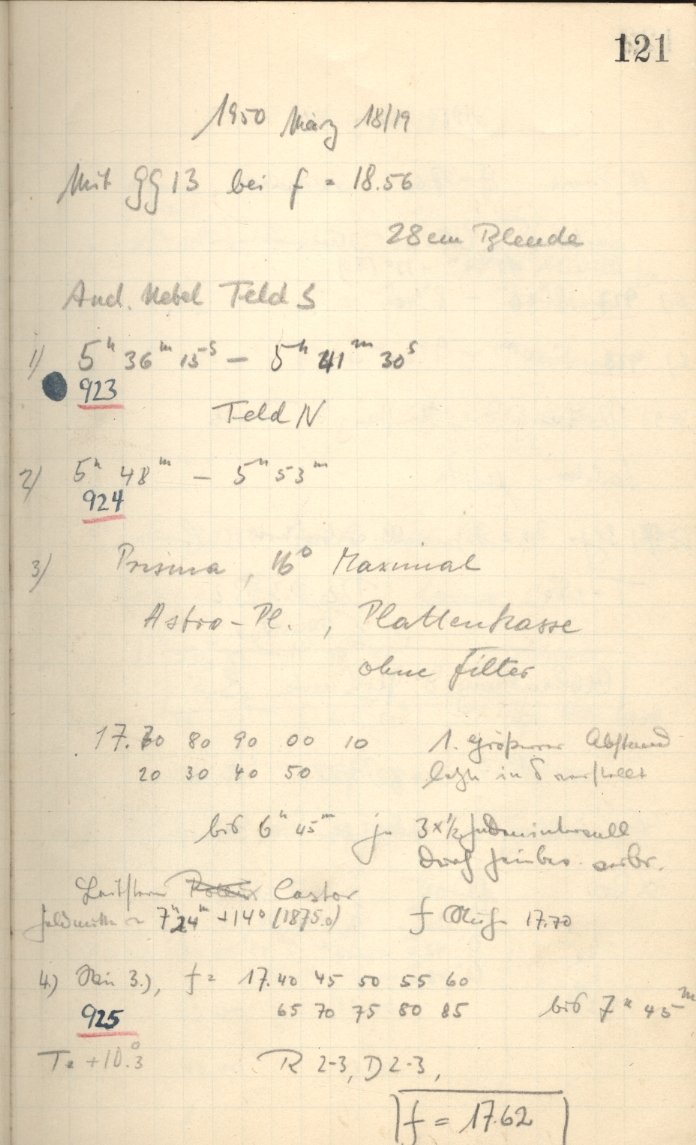 121
1950 März 18/19
Mit GG 13 bei f = 18.56
28 cm Blende
And. Nebel Feld S
1) 5ʰ 36ᵐ 15ˢ — 5ʰ 41ᵐ 30ˢ
923
Feld N
2) 5ʰ 48ᵐ — 5ʰ 53ᵐ
924
3) Prisma, 16° Maximal
Astro-Pl., Plattenkasse
ohne Filter
17.70 80 90 00 10 1. größerer Abstand
20 30 40 50 letzte in δ verstellt
bis 6ʰ 45ᵐ je 3 x ½
durch
Leitstern Castor
Feldmitte ~ 7ʰ 24ᵐ +14° (1875.0) f 17.70
4.) Wie 3.), f = 17.40 45 50 55 60
925 65 70 75 80 85 bis 7ʰ 45ᵐ
T = +10.°3 R 2-3, D 2-3,
f = 17.62